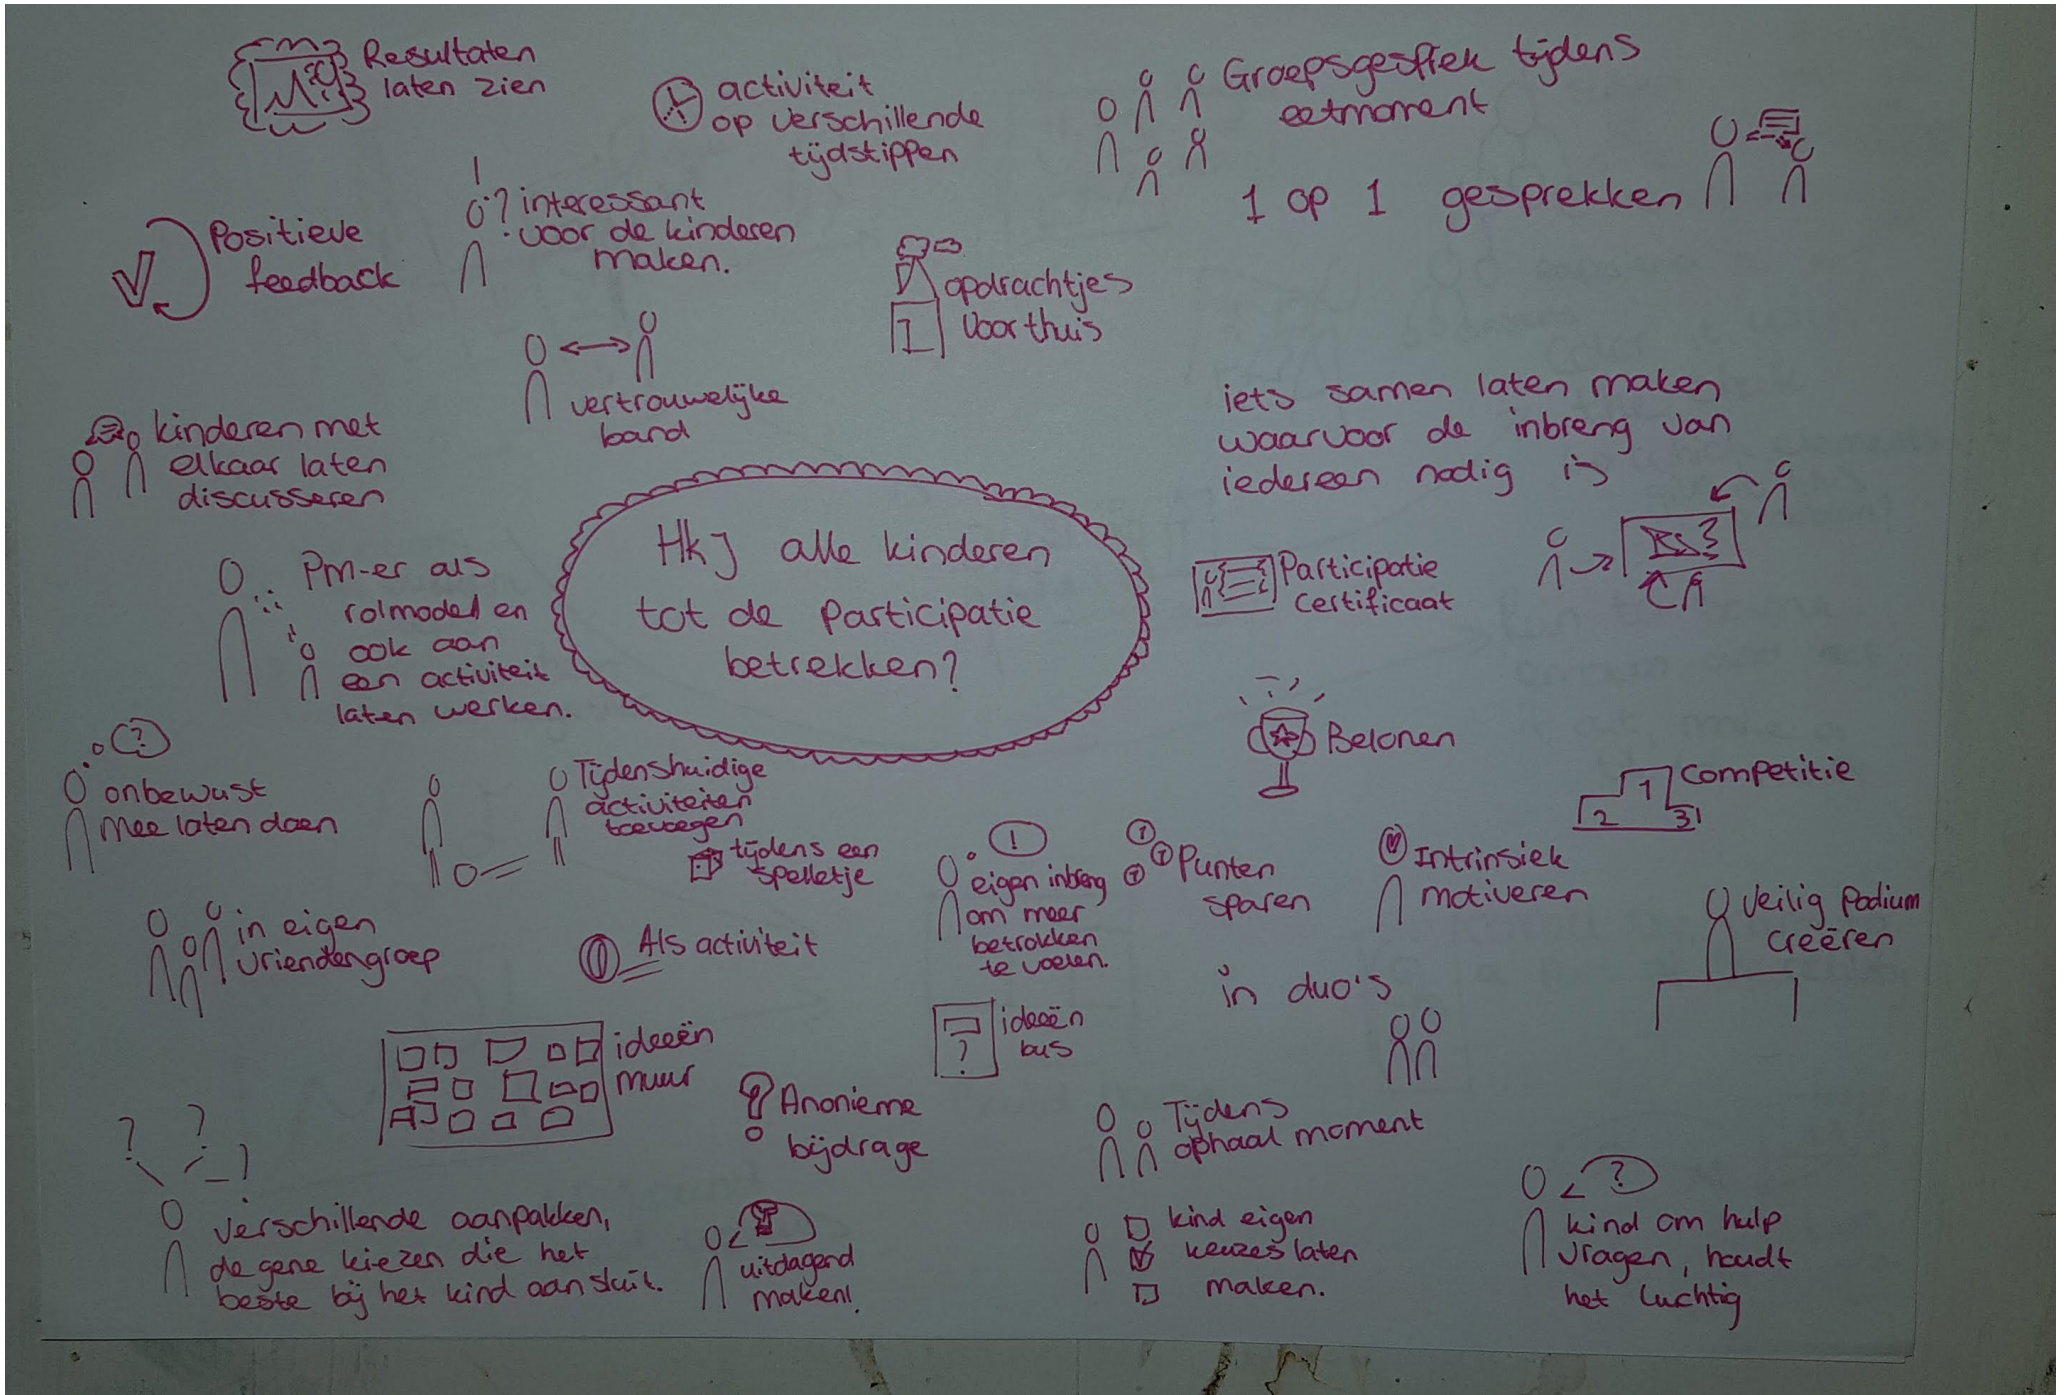 Resultaten
laten zien
activiteit
op verschillende
tijdstippen
Groepsgesprek tijdens
eetmoment
1 op 1 gesprekken
Positieve
feedback
interessant
voor de kinderen
maken.
opdrachtjes
voor thuis
vertrouwelijke
band
kinderen met
elkaar laten
discusseren
iets samen laten maken
waarvoor de inbreng van
iedereen nodig is
Hkj alle kinderen
tot de participatie
betrekken?
Participatie
certificaat
PM-er als
rolmodel en
ook aan
een activiteit
laten werken.
Belonen
?
onbewust
mee laten doen
Tijdens huidige
activiteiten
toevoegen
tijdens een
spelletje
1
2
3
Competitie
!
eigen inbreng
om meer
betrokken
te voelen.
Punten
sparen
Intrinsiek
motiveren
Veilig podium
creëren
in eigen
vriendengroep
Als activiteit
in duo's
ideeën
muur
?
ideeën
bus
Anonieme
bijdrage
Tijdens
ophaal moment
? ? ?
verschillende aanpakken,
degene kiezen die het
beste bij het kind aansluit.
uitdagend
maken!
kind eigen
keuzes laten
maken.
?
kind om hulp
vragen, houdt
het luchtig